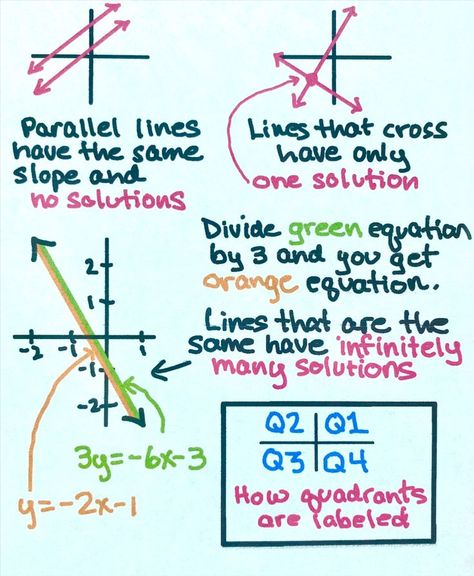 Parallel lines
have the same
slope and
no solutions
Lines that cross
have only
one solution
Divide green equation
by 3 and you get
orange equation.
Lines that are the
same have infinitely
many solutions
2
1
-2 -1 1
-1
-2
3y=-6x-3
y=-2x-1
Q2 Q1
Q3 Q4
How quadrants
are labeled